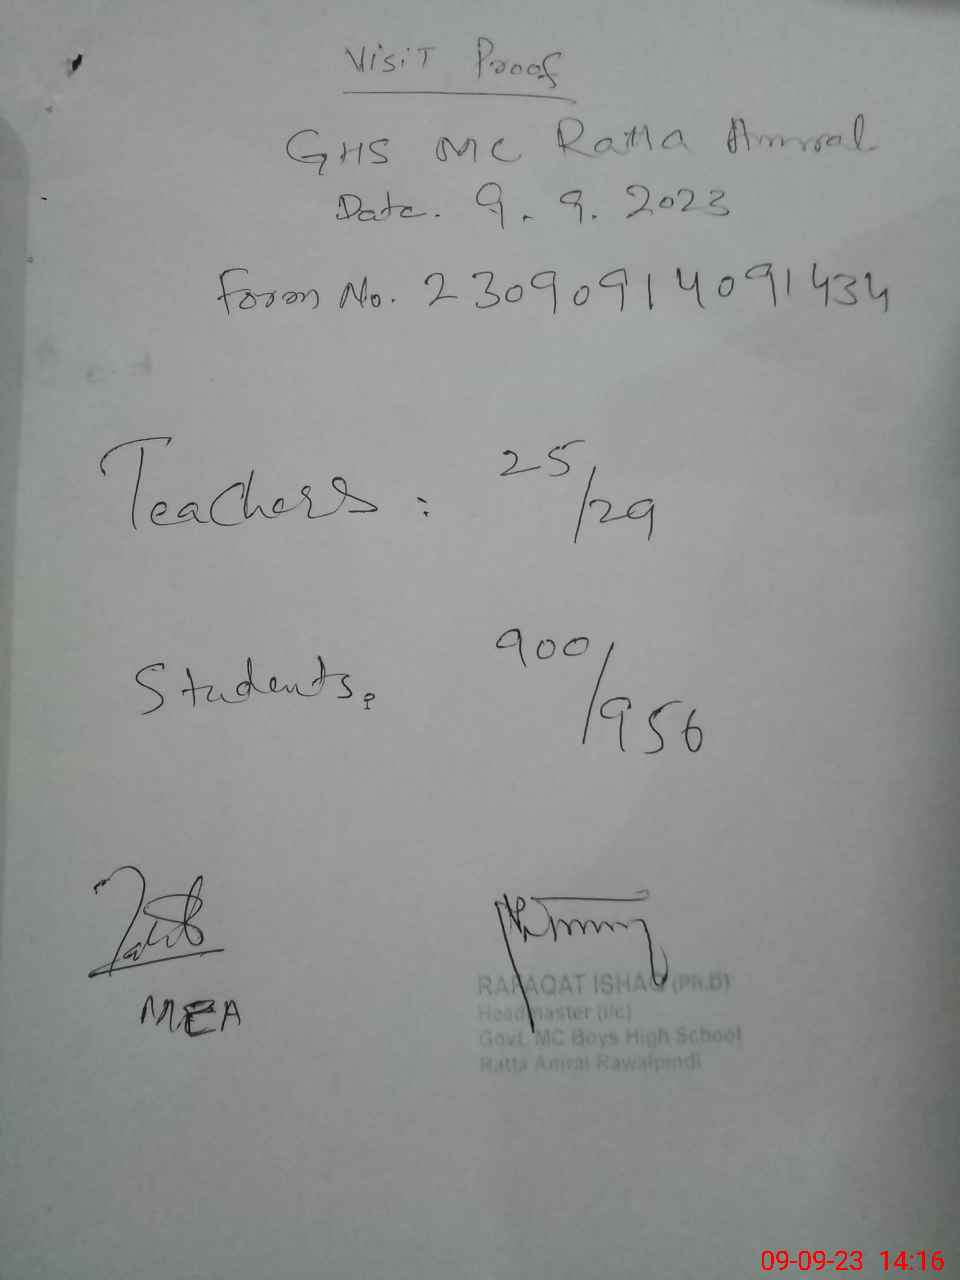 Visit Proof
GHS MC Ratta Amral
Date. 9.9.2023
Form No. 23090914091434
Teachers: 25/29
Students: 900/956
MEA
RAFAQAT ISHAQ (Ph.D)
Headmaster (I/c)
Govt. MC Boys High School
Ratta Amral Rawalpindi
09-09-23 14:16